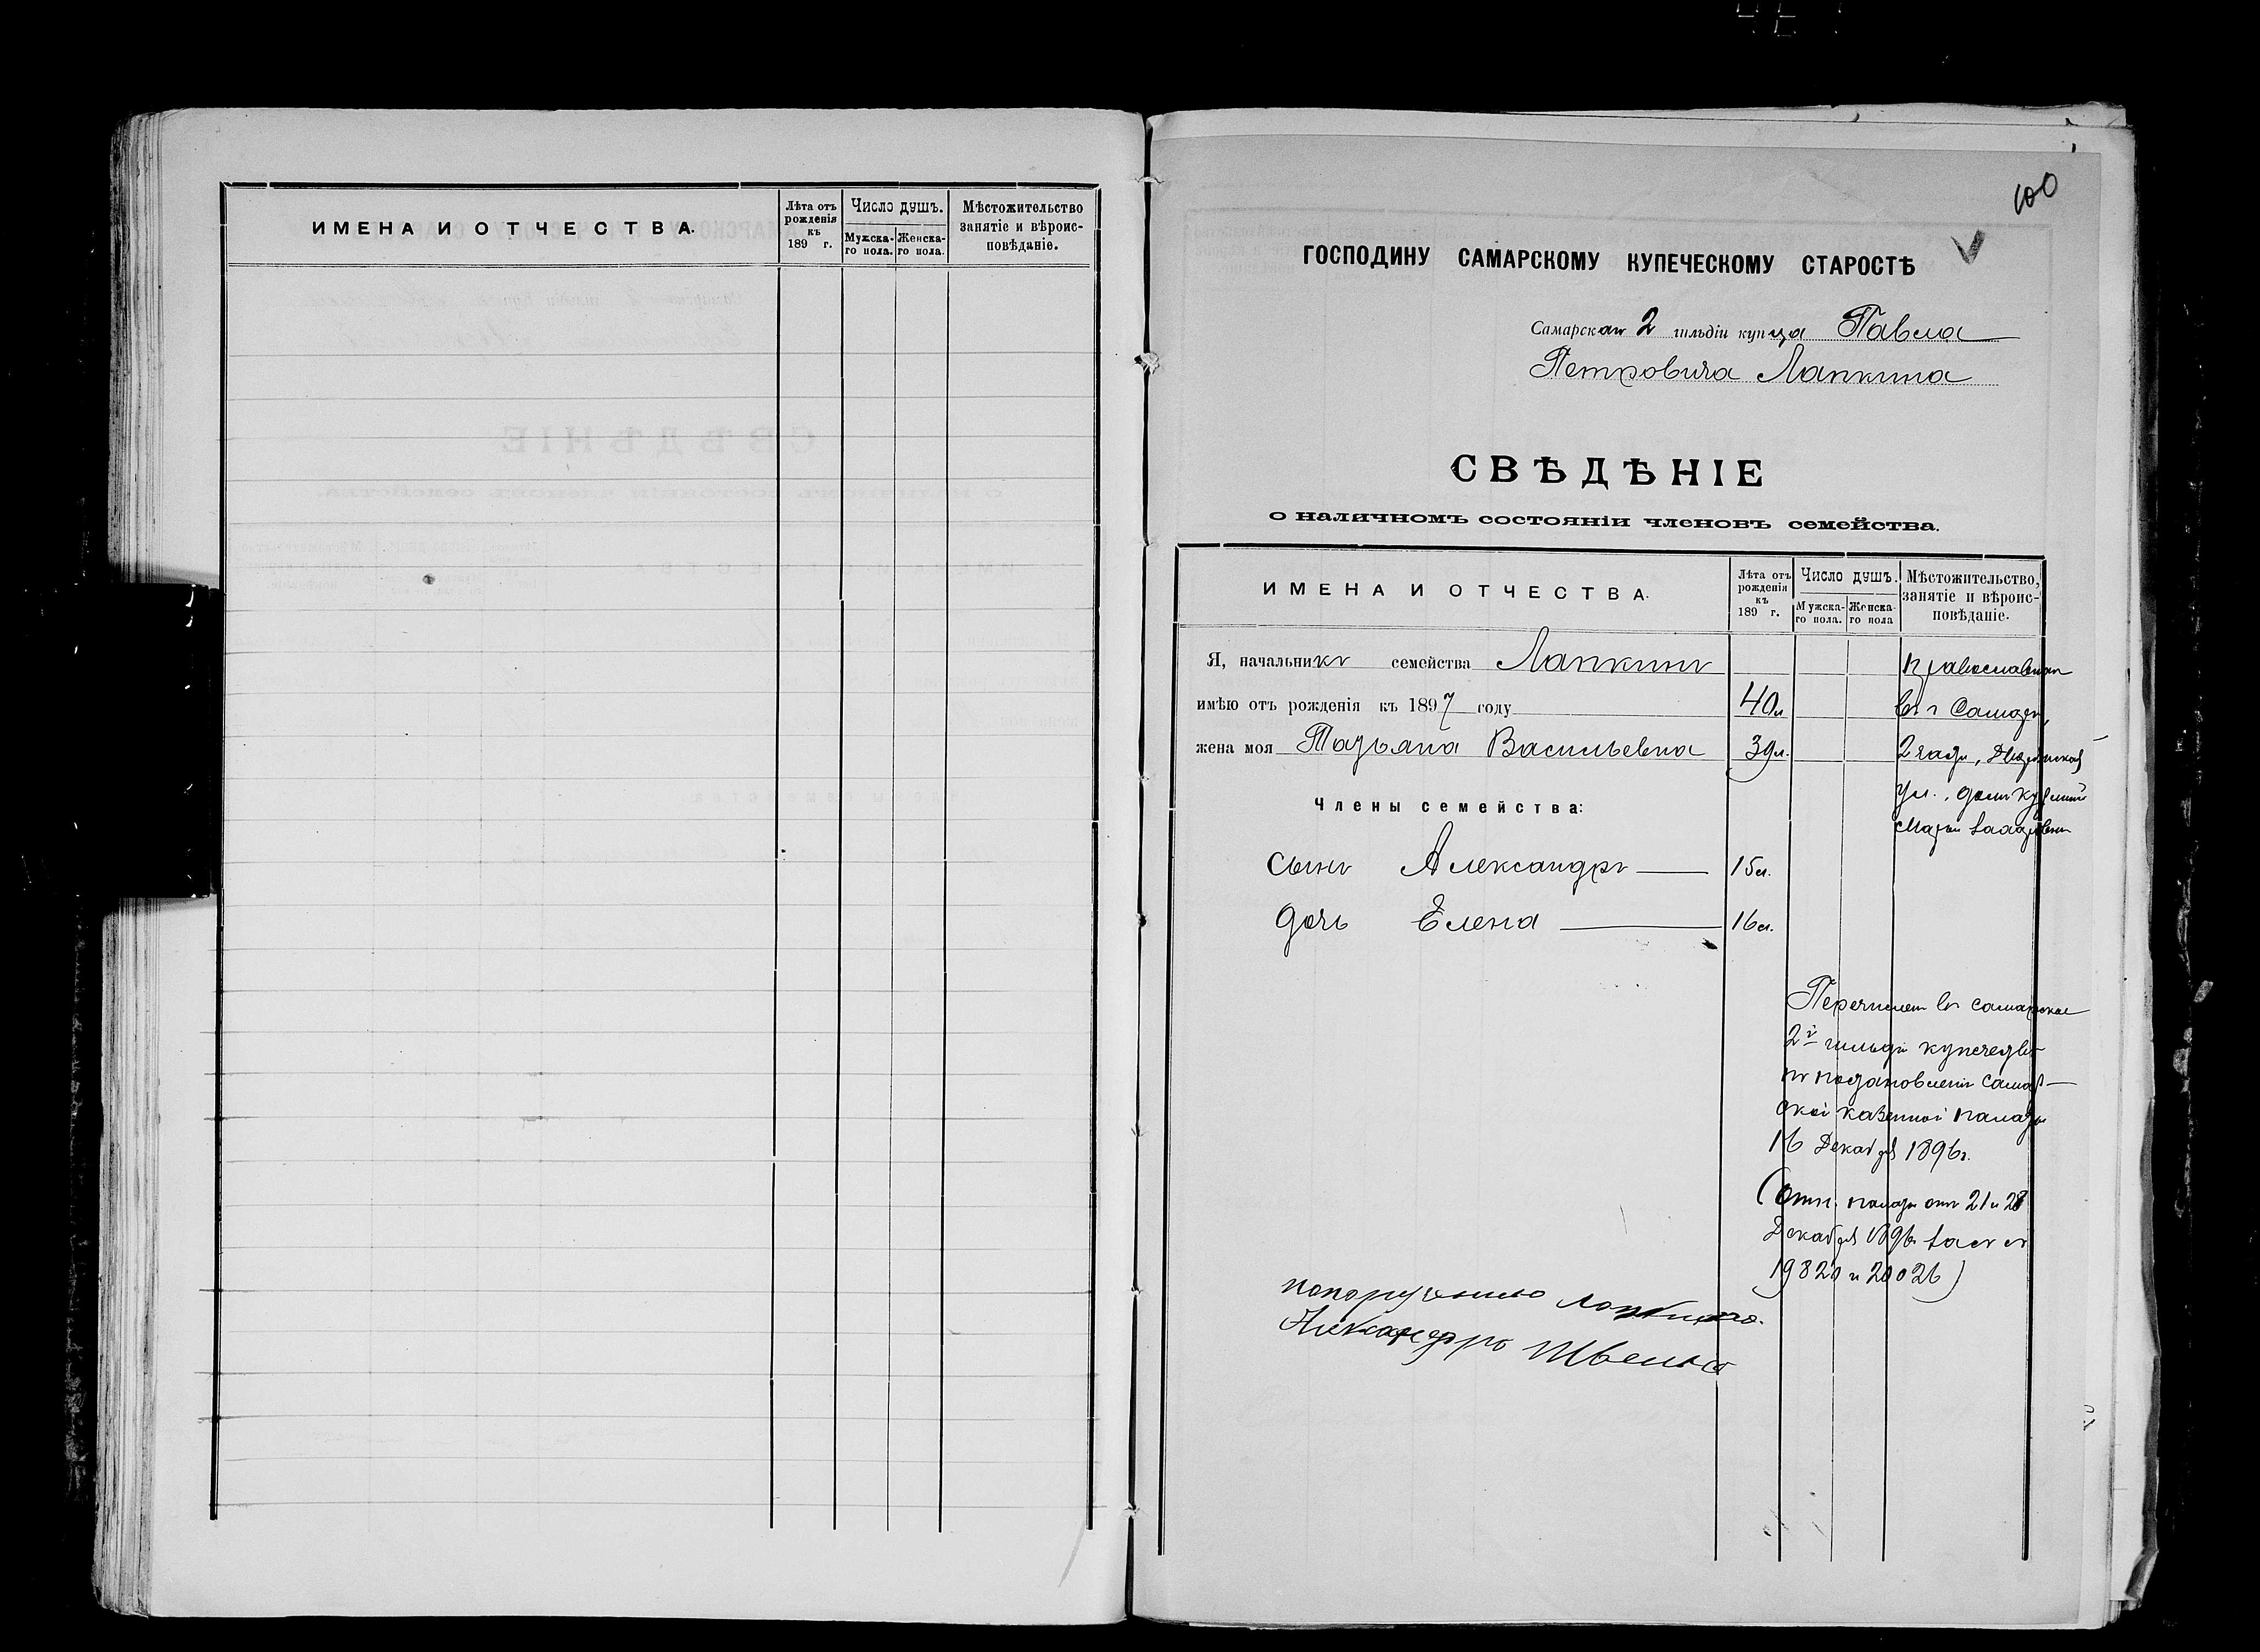 ИМЕНА И ОТЧЕСТВА.
Лѣта отъ рожденія къ 189 г.
Число душъ.
Мужска-го пола.
Женска-го пола.
Мѣстожительство занятіе и вѣроис-повѣданіе.
100
ГОСПОДИНУ САМАРСКОМУ КУПЕЧЕСКОМУ СТАРОСТѢ
Самарскаго 2 гильдіи купца Павла
Петровича Лапкина
СВѢДѢНІЕ
о наличномъ состояніи членовъ семейства.
ИМЕНА И ОТЧЕСТВА.
Лѣта отъ рожденія къ 189 г.
Число душъ.
Мужска-го пола.
Женска-го пола
Мѣстожительство, занятіе и вѣроис-повѣданіе.
Я, начальникъ семейства Лапкинъ
имѣю отъ рожденія къ 1897 году 40 л
жена моя Татьяна Васильевна 39 л.
православная
въ г Самарѣ,
2 части,
ул., домъ
Члены семейства:
сынъ Александръ 15 л.
дочь Елена 16 л.
Перечисленъ въ самарское
2й гильдіи купечество
по постановленію Самар-
ской казенной палаты
16 Декабря 1896 г.
(отн. палаты отъ 21 и 28
Декабря 1896 за №
19820 и 20026)
по порученію Лапкина
Александръ